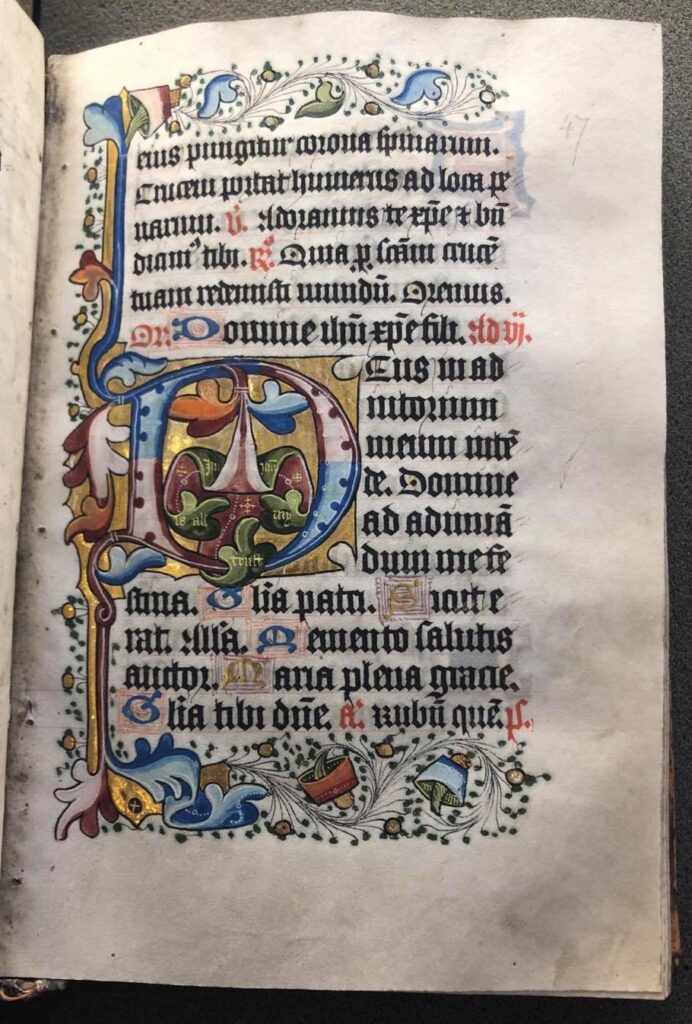 47
eius pungitur corona spinarum.
Crucem portat humeris ad loca pe
narum. V̉. Adoramus te xp̄e ⁊ bn̄
dicimꝰ tibi. R̉. Quia ꝑ sc̄am crucē
tuam redemisti mundū. Oremus.
Or̄. Domine ih̄u xp̄e fili. Ad vj.
Deus in ad
iutorium
meum intē
de. Domine
ad adiuuā
dum me fe
stina. Gl̄ia patri. Sicut e
rat. All̄a. Memento salutis
auctor. Maria plena gracie.
Gl̄ia tibi dn̄e. a. Rubū quē. p̄s.